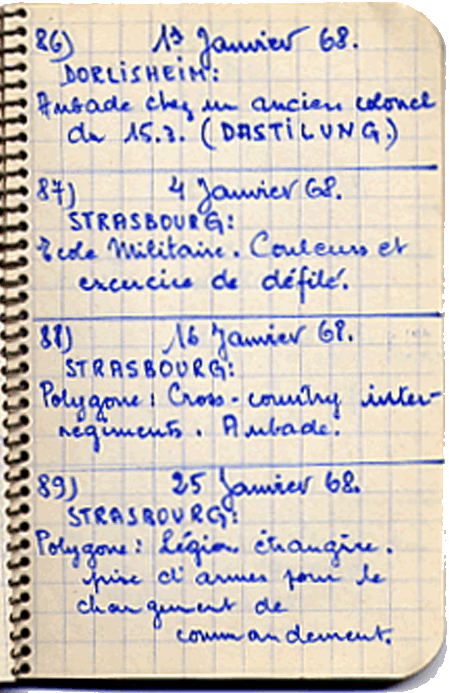 86) 1er Janvier 68.
DORLISHEIM:
Aubade chez un ancien colonel
du 15.2. (DASTILUNG.)
87) 4 Janvier 68.
STRASBOURG:
Ecole Militaire. Couleurs et
excercice de défilé.
88) 16 Janvier 68.
STRASBOURG:
Polygone: Cross-country inter-
régiments. Aubade.
89) 25 Janvier 68.
STRASBOURG:
Polygone: Légion étrangère.
prise d'armes pour le
changement de
commandement.